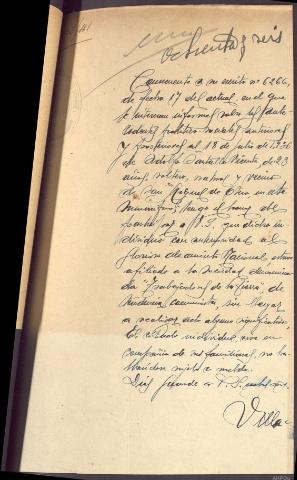 41
ochenta y seis
Conumento a su escrito nº 6266,
de fecha 17 del actual, en el que
se interesan informes sobre los ante-
cedentes politico sociales anteriores
y posteriores al 18 de Julio de 1936
de Adolfo Vicente de 23
años, soltero, natural y vecino
de San Miguel de en este
tengo el honor de
a V.S. que dicho in-
dividuo con anterioridad al
Glorioso Movimiento Nacional, estuvo
afiliado a la sociedad denomina-
da Trabajadores de la Tierra, de
tendencia comunista, sin llegar
a realizar acto alguno significativo.
El citado individuo, vive en
compañia de sus familiares, no ha-
Dios guarde a V.S. muchos años.